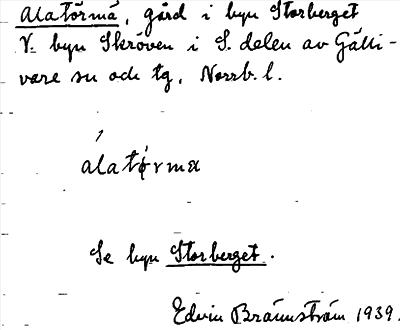 Alatörmä, gård i byn Storberget
V. byn Skröven i S. delen av Gälli-
vare sn och tg, Norrb. l.
álatǿrma
Se byn Storberget.
Edvin Brännström 1939.